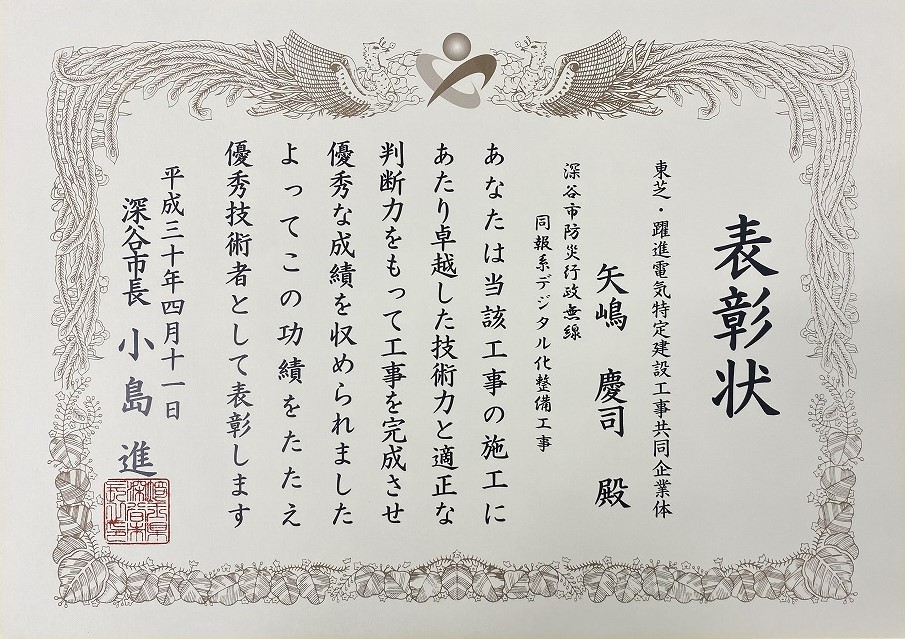 表彰状
東芝・躍進電気特定建設工事共同企業体
矢嶋 慶司 殿
深谷市防災行政無線
同報系デジタル化整備工事
あなたは当該工事の施工に
あたり卓越した技術力と適正な
判断力をもって工事を完成させ
優秀な成績を収められました
よってこの功績をたたえ
優秀技術者として表彰します
平成三十年四月十一日
深谷市長 小島 進